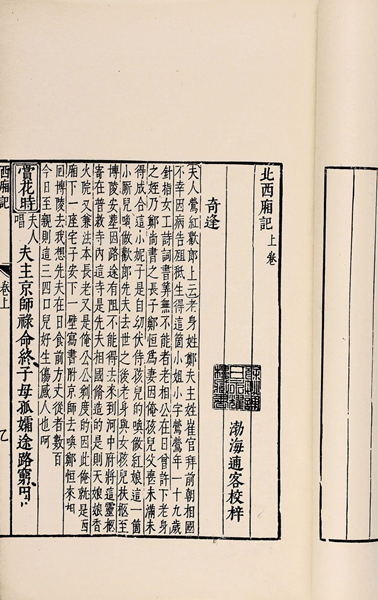 北西廂記上卷
渤海逋客校梓
奇逢
夫人鶯紅歡郎上云老身姓鄭夫主姓崔官拜前朝相國
不幸因病告殂秪生得這箇小姐小字鶯鶯年一十九歲
針指女工詩詞書筭無不能者老相公在日曾許下老身
之姪乃鄭尚書之長子鄭恒爲妻因俺孩兒父喪未滿未
得成合這小妮子是自幼伏侍孩兒的喚做紅娘這一箇
小厮兒喚做歡郎先夫去世之後老身與女孩兒扶柩至
博陵安塟因路途有阻不能得去來到河中府將這靈柩
寄在普救寺內這寺是先夫相國脩造的是則天娘娘香
火院又兼法本長老又是俺公公剃度的因此俺就這西
廂下一座宅子安下一壁寫書附京師去喚鄭恒來相
囘博陵去我想先夫在日食前方丈從者數百
今日至親則這三四口兒好生傷感人也呵
賞花時
夫人唱
夫主京師祿命終子母孤孀途路窮因
西廂記
卷上